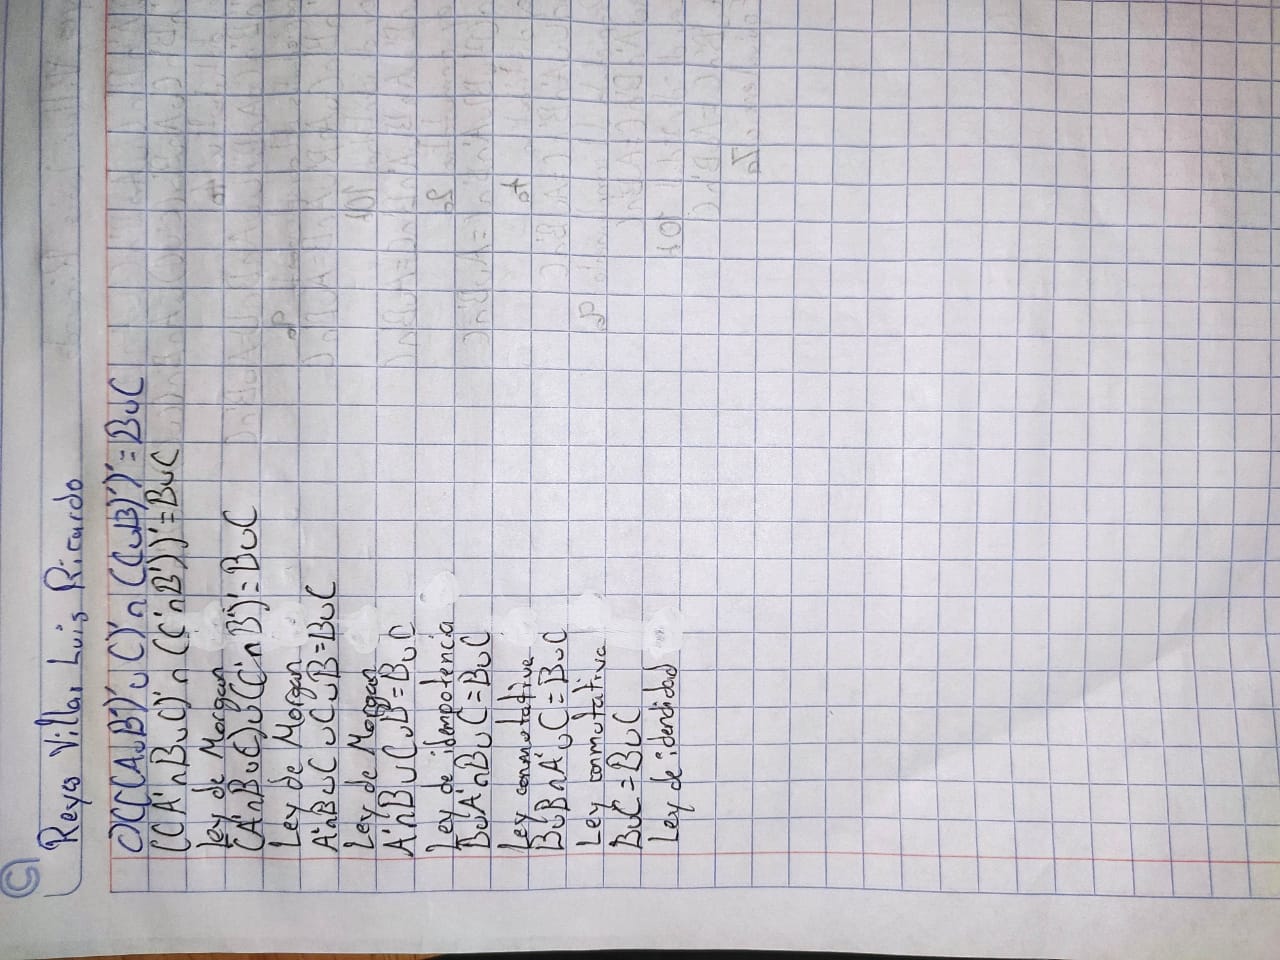 C)
Reyes Villar Luis Ricardo
C)(((A∪B')'∪C)'∩((C∪B)')')'=B∪C
((A'∩B∪C)'∩((C'∩B'))'=B∪C
Ley de Morgan
(A'∩B∪C)∪((C'∩B')'=B∪C
Ley de Morgan
A'∩B∪C∪C∪B=B∪C
Ley de Morgan
A'∩B∪C∪B=B∪C
Ley de idempotencia
B∪A'∩B∪C=B∪C
Ley conmutativa
B∪B∩A'∪C=B∪C
Ley conmutativa
B∪C=B∪C
Ley de idendidad